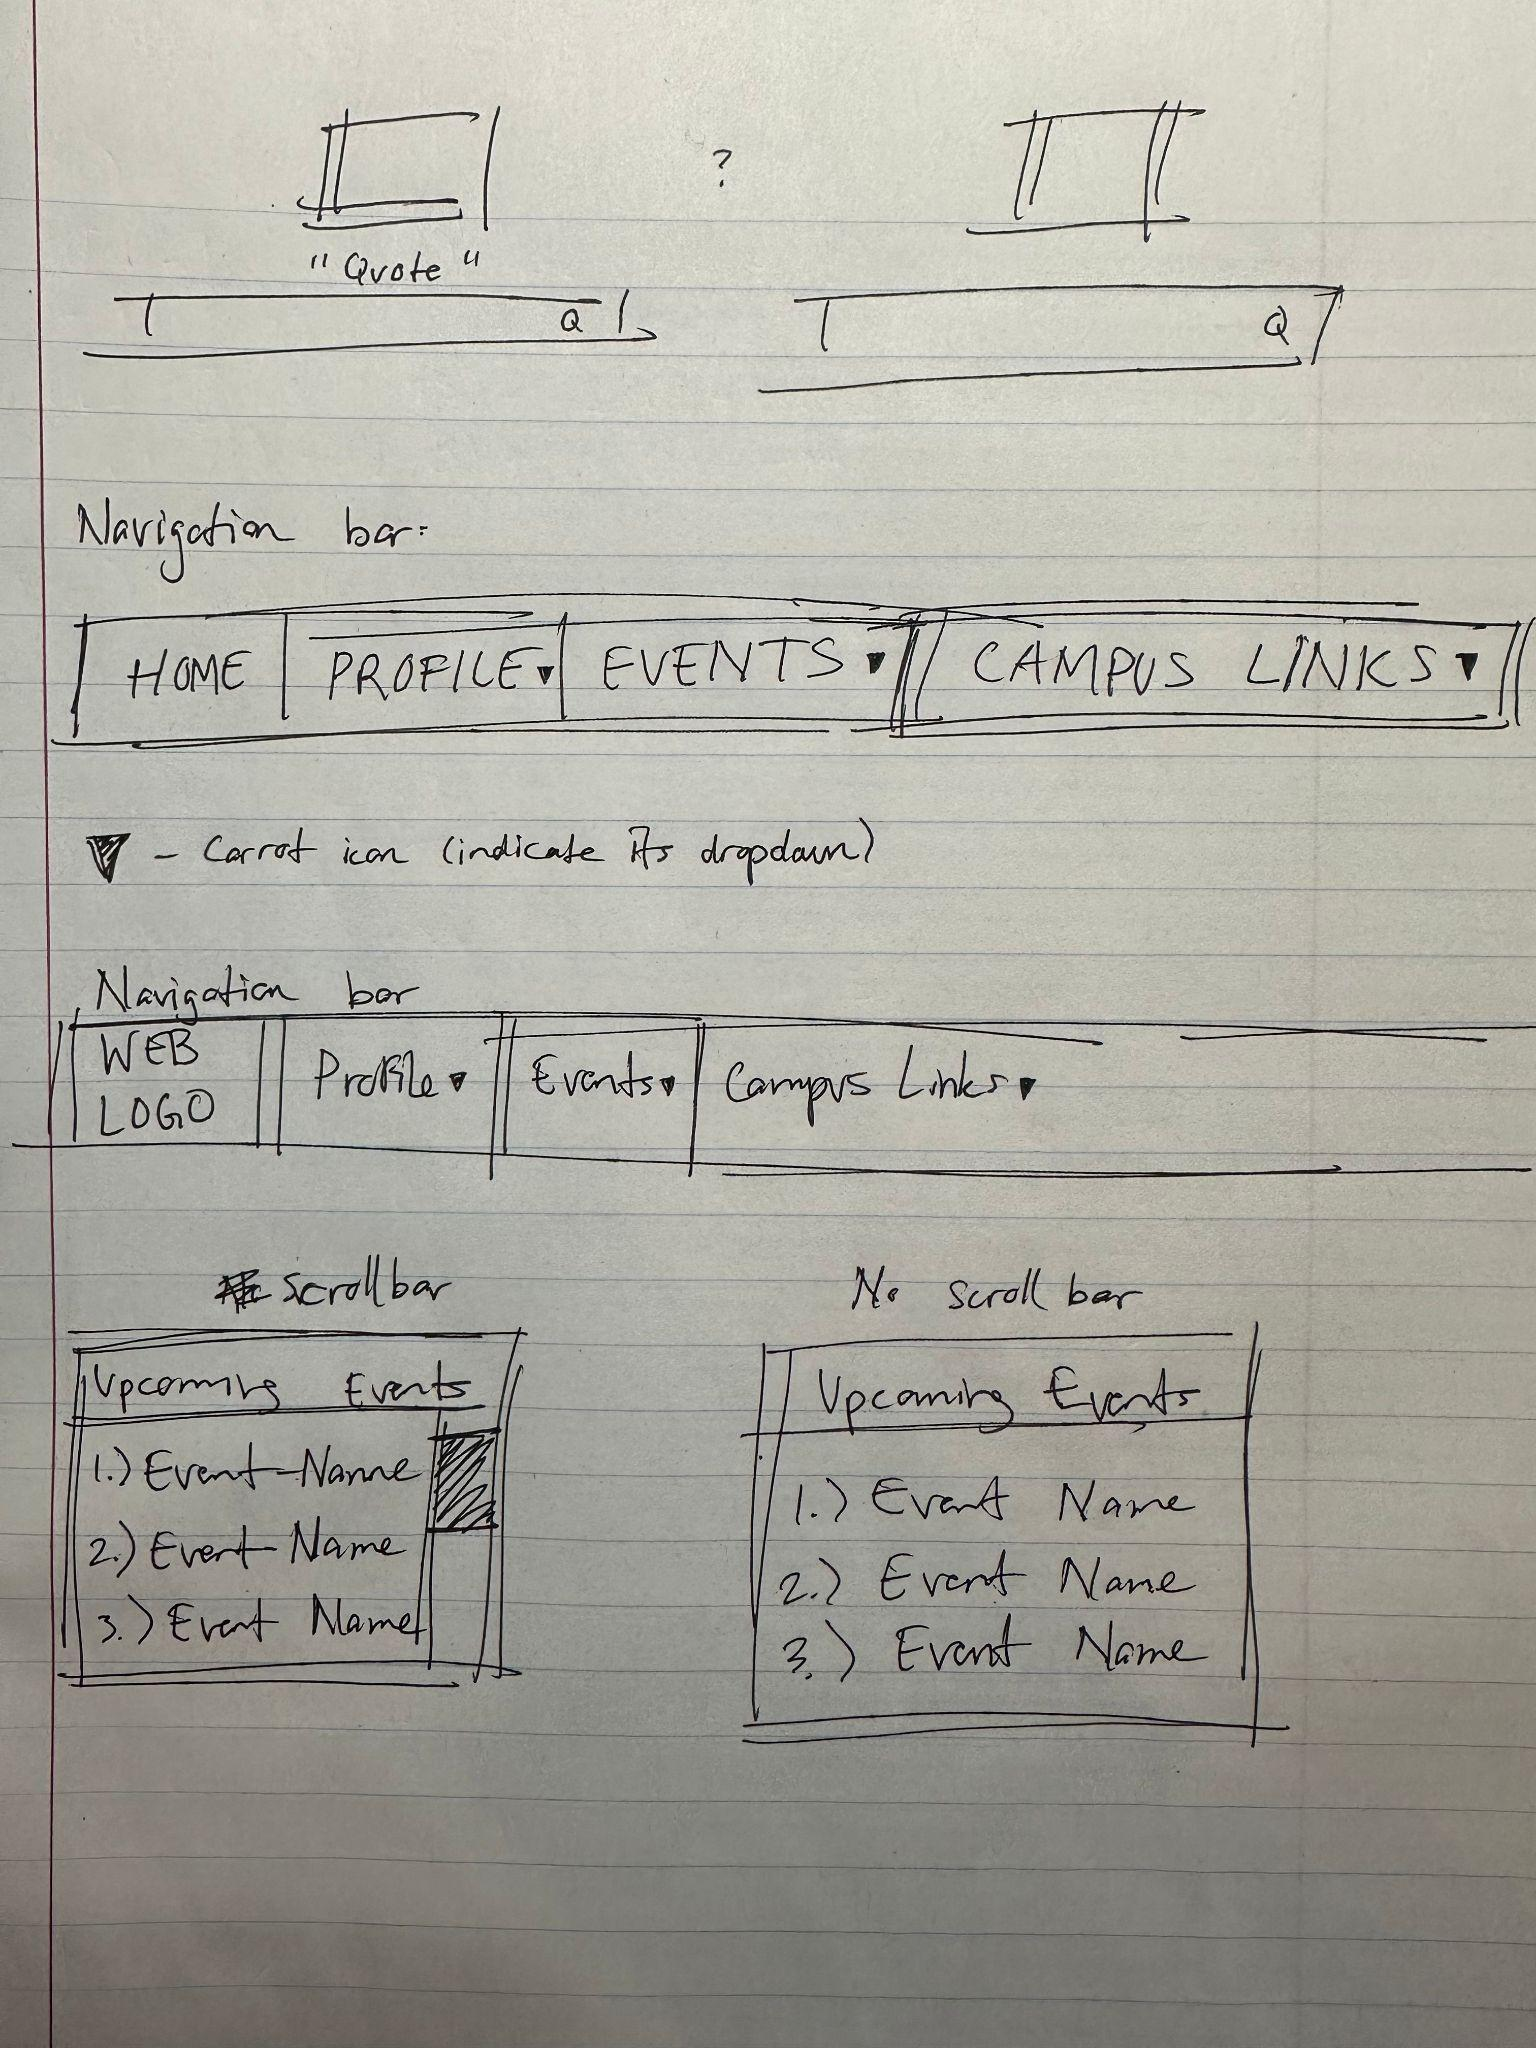 ?
" Quote "
Q
Q
Navigation bar:
HOME PROFILE▼ EVENTS ▼ CAMPUS LINKS▼
▼ - Carrot icon (indicate its dropdown)
Navigation bar
WEB
LOGO
Profile▼ Events▼ Campus Links▼
scrollbar
No scroll bar
Upcoming Events
1.) Event Name
2.) Event Name
3.) Event Name
Upcoming Events
1.) Event Name
2.) Event Name
3.) Event Name